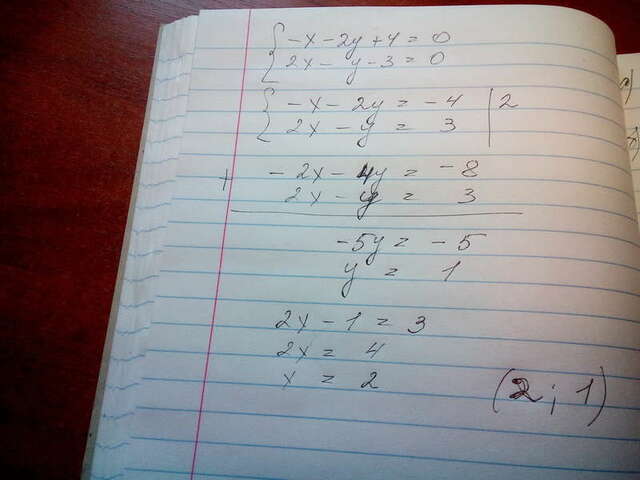 { -x - 2y + 4 = 0
2x - y - 3 = 0
{ -x - 2y = -4 | 2
2x - y = 3
+ -2x - 4y = -8
2x - y = 3
-5y = -5
y = 1
2x - 1 = 3
2x = 4
x = 2
(2; 1)